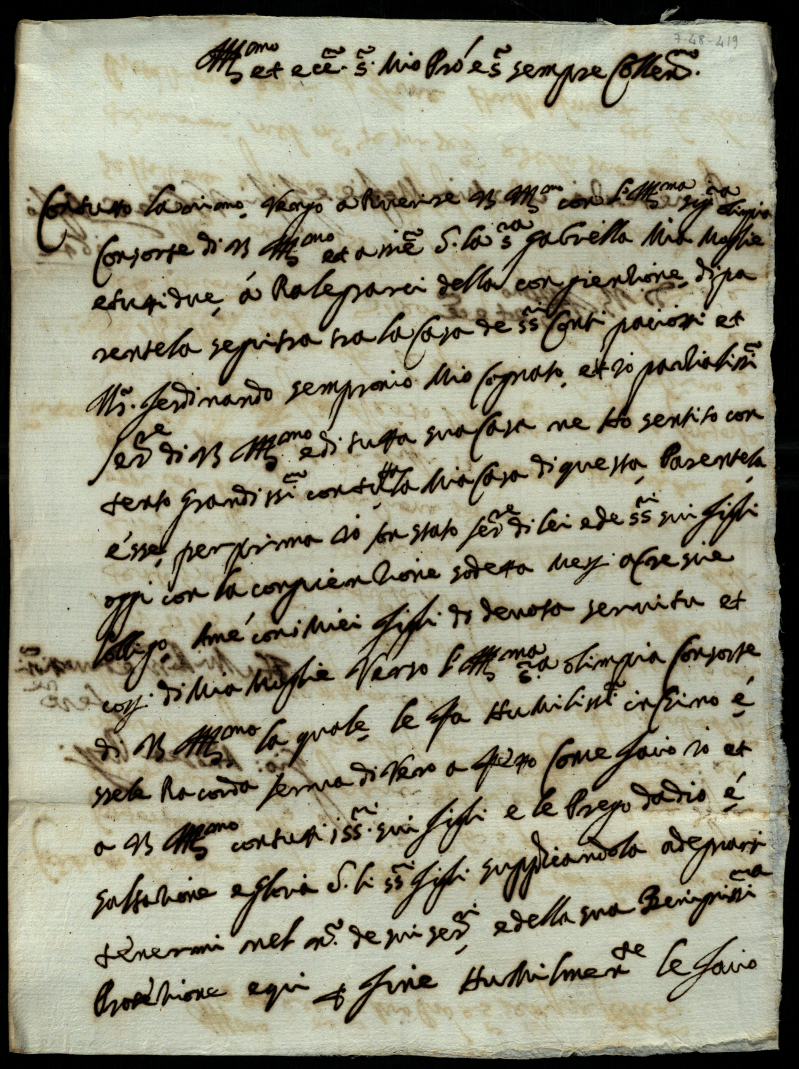 7-48-419
Ill.mo et ecc.º S.r Mio Pró e S.r sempre Collen.mo
Con tutto la animo Vengo a Riverire VS Ill.mo con l' Ill.ma sig.ra olimpia
Consorte di VS Ill.mo et a me la s.ra Gabriella Mia Moglie
e tutti due á Ralegrarci della congiontione di pa
rentela seguitta tra la Casa de ss.ri Conti paciotti et
Ms. ferdinando sempronio Mio Cognato et io partialiss.mo
ser.re di VS Ill.mo e di tutta sua Casa ne Ho sentito con
tento grandiss.mo con tutta la Mia Casa di questa Parentela
é sse per prima io son stato ser.re di lei e de ss.ri sui figli
oggi con la congiontione sodetta
obligo Amé con i Miei figli di devota servitu et
cosi di Mia Moglie Verso l' Ill.ma s.ra olimpia Consorte
di VS Ill.mo la quale le fa Humiliss.mo inchino é
ssele Racorda serva di Vero afetto Come facio io et
a VS Ill.mo con tutti i ss.ri sui figli e le Prego da dio é
saltatione e Gloria li ss.ri figli supplicandola a degnarsi
tenermi nel n.º de sui ser.ri e della sua Benigniss.ma
Protetione e qui fine Humilmen.te le facio